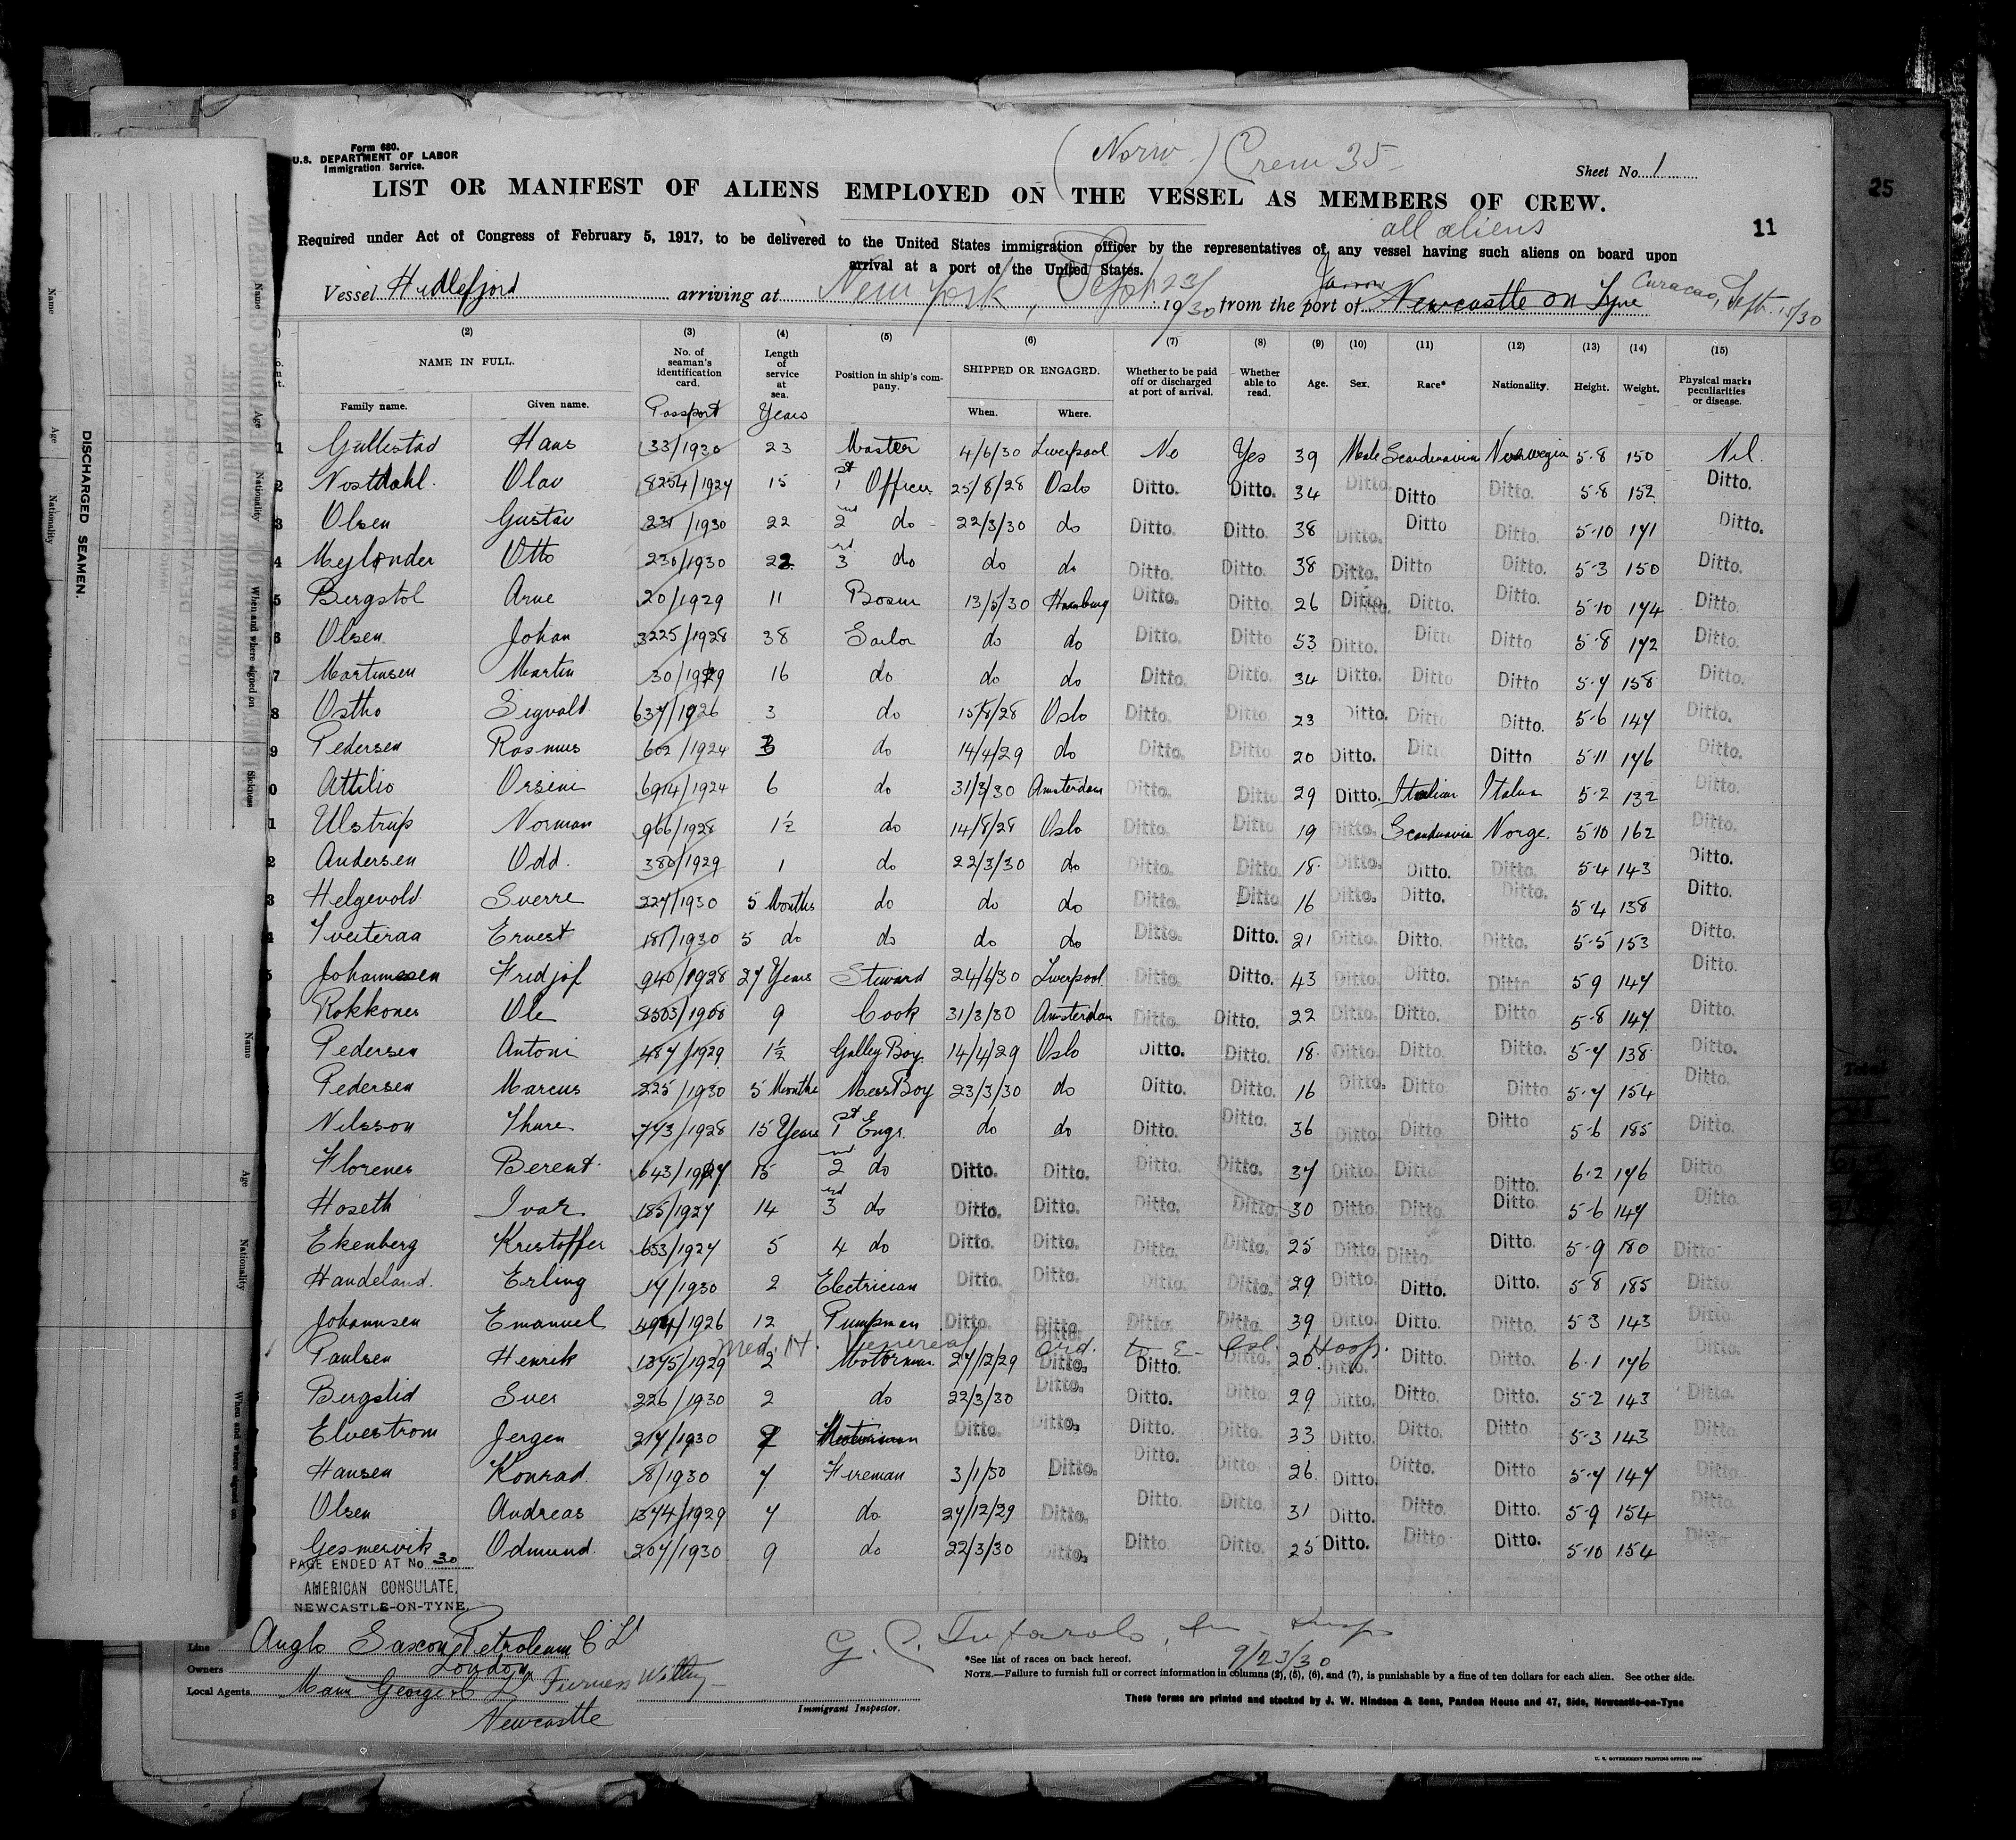 Form 680.
U.S. DEPARTMENT OF LABOR
Immigration Service.
(Norw.) Crew 35
Sheet No. 1
LIST OR MANIFEST OF ALIENS EMPLOYED ON THE VESSEL AS MEMBERS OF CREW.
all aliens
11
25
Required under Act of Congress of February 5, 1917, to be delivered to the United States immigration officer by the representatives of any vessel having such aliens on board upon
arrival at a port of the United States.
Vessel Hidlefjord arriving at New York, Sept 23/ 19/30 from the port of Jarrow Newcastle on Tyne Curacao, Sept. 15/30
(2) (3) (4) (5) (6) (7) (8) (9) (10) (11) (12) (13) (14) (15)
NAME IN FULL. Family name. Given name. No. of seaman's identification card. Passport Length of service at sea. Years Position in ship's company. SHIPPED OR ENGAGED. When. Where. Whether to be paid off or discharged at port of arrival. Whether able to read. Age. Sex. Race* Nationality. Height. Weight. Physical marks peculiarities or disease.
1 Gullestad Hans 33/1930 23 Master 4/6/30 Liverpool No Yes 39 Male Scandinavian Norwegian 5-8 150 Nil.
2 Nostdahl. Olav 8254/1927 15 1st Officer 25/8/28 Oslo Ditto. Ditto. 34 Ditto. Ditto Ditto. 5-8 152 Ditto.
3 Olsen Gustav 231/1930 22 2nd do 22/3/30 do Ditto. Ditto. 38 Ditto. Ditto Ditto. 5-10 171 Ditto.
4 Mejlonder Otto 230/1930 22 3rd do do do Ditto. Ditto. 38 Ditto. Ditto Ditto. 5-3 150 Ditto.
5 Bergstol Arne 20/1929 11 Bosun 13/5/30 Hamburg Ditto. Ditto. 26 Ditto. Ditto. Ditto. 5-10 174 Ditto.
6 Olsen Johan 3225/1928 38 Sailor do do Ditto. Ditto 53 Ditto. Ditto Ditto 5-8 172 Ditto.
7 Martinsen Martin 30/1929 16 do do do Ditto. Ditto. 34 Ditto. Ditto Ditto 5-7 158 Ditto.
8 Ostho Sigvald. 637/1926 3 do 15/8/28 Oslo Ditto. Ditto. 23 Ditto. Ditto Ditto. 5-6 147 Ditto.
9 Pedersen Rasmus 602/1924 3 do 14/4/29 do Ditto. Ditto. 20 Ditto. Ditto Ditto 5-11 176 Ditto.
0 Attilio Orsini 6914/1924 6 do 31/3/30 Amsterdam Ditto. Ditto 29 Ditto. Italian Italian 5-2 132 Ditto.
1 Ulstrup Norman 966/1928 1½ do 14/8/28 Oslo Ditto. Ditto 19 Ditto. Scandinavia Norge. 5-10 162 Ditto.
2 Andersen Odd. 380/1929 1 do 22/3/30 do Ditto. Ditto. 18. Ditto. Ditto. Ditto. 5-4 143 Ditto.
3 Helgevold. Sverre 227/1930 5 Months do do do Ditto. Ditto 16 Ditto. Ditto. Ditto. 5-4 138 Ditto.
4 Tveiteraa Ernest 181/1930 5 do do do do Ditto. Ditto. 21 Ditto. Ditto. Ditto. 5-5 153 Ditto.
5 Johannesen Fridjof 940/1928 27 Years Steward 24/6/30 Liverpool Ditto. Ditto. 43 Ditto. Ditto. Ditto. 5 9 147 Ditto.
Rokkones Ole 8503/1908 9 Cook 31/3/30 Amsterdam Ditto. Ditto. 22 Ditto. Ditto. Ditto 5-8 147 Ditto.
Pedersen Antoni 487/1929 1½ Galley Boy 14/4/29 Oslo Ditto. Ditto. 18. Ditto. Ditto. Ditto. 5-7 138 Ditto.
Pedersen Marcus 225/1930 5 Months Mess Boy 23/3/30 do Ditto. Ditto. 16 Ditto. Ditto. Ditto 5-7 154 Ditto.
Nilsson Thure 773/1928 15 Years 1st Engr. do do Ditto. Ditto. 36 Ditto. Ditto. Ditto 5-6 185 Ditto.
Florenes Berent 643/1927 15 2nd do Ditto. Ditto. Ditto. Ditto. 37 Ditto. Ditto Ditto. 6-2 176 Ditto
Hoseth Ivar 185/1927 14 3rd do Ditto. Ditto. Ditto. Ditto. 30 Ditto. Ditto. Ditto. 5-6 147 Ditto.
Ekenberg Kristoffer 653/1927 5 4 do Ditto. Ditto. Ditto. Ditto. 25 Ditto Ditto. Ditto. 5-9 180 Ditto
Handeland. Erling 14/1930 2 Electrician Ditto. Ditto. Ditto. Ditto. 29 Ditto. Ditto. Ditto. 5 8 185 Ditto.
Johannsen Emanuel 494/1926 12 Pumpman Ditto. Ditto. Ditto. Ditto. 39 Ditto. Ditto. Ditto. 5 3 143 Ditto.
Med. H. Venereal Ord. to E. Isl. Hosp.
Paulsen Henrik 1375/1929 2 Motorman 27/12/29 Ditto. Ditto. Ditto. 20 Ditto. Ditto. Ditto. 6-1 176 Ditto.
Bergslid Sver 226/1930 2 do 22/3/30 Ditto. Ditto. Ditto. 29 Ditto. Ditto. Ditto. 5-2 143 Ditto.
Elvestrom Jergen 217/1930 7 Motorman Ditto. Ditto. Ditto. Ditto. 33 Ditto. Ditto. Ditto 5-3 143 Ditto.
Hansen Konrad. 8/1930 7 Fireman 3/1/30 Ditto. Ditto. Ditto. 26 Ditto. Ditto. Ditto 5-7 147 Ditto.
Olsen Andreas 1374/1929 7 do 27/12/29 Ditto. Ditto. Ditto. 31 Ditto. Ditto. Ditto. 5-9 154 Ditto.
Gesmervik Odmund. 207/1930 9 do 22/3/30 Ditto. Ditto. Ditto. 25 Ditto. Ditto Ditto. 5-10 154 Ditto
PAGE ENDED AT No. 30
AMERICAN CONSULATE,
NEWCASTLE-ON-TYNE.
Line Anglo Saxon Petroleum Co Ld
Owners London
Local Agents Mann George & Co Ld Furness Withy
Newcastle
9/23/30
Immigrant Inspector.
*See list of races on back hereof.
NOTE.—Failure to furnish full or correct information in columns (2), (5), (6), and (7), is punishable by a fine of ten dollars for each alien. See other side.
These forms are printed and stocked by J. W. Hindson & Sons, Pandon House and 47, Side, Newcastle-on-Tyne
DISCHARGED SEAMEN.
Name
Age
Nationality
When and where signed on
Sickness